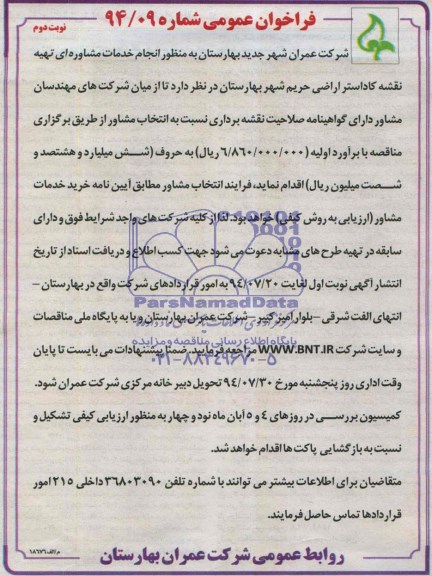 فراخوان عمومی شماره ۹۴/۰۹
نوبت دوم
شرکت عمران شهر جدید بهارستان به منظور انجام خدمات مشاوره ای تهیه
نقشه کاداستر اراضی حریم شهر بهارستان در نظر دارد تا از میان شرکت های مهندسان
مشاور دارای گواهینامه صلاحیت نقشه برداری نسبت به انتخاب مشاور از طریق برگزاری
مناقصه با برآورد اولیه (۶/۸۶۰/۰۰۰/۰۰۰ ریال) به حروف (شش میلیارد و هشتصد و
شصت میلیون ریال) اقدام نماید، فرایند انتخاب مشاور مطابق آیین نامه خرید خدمات
مشاور (ارزیابی به روش کیفی) خواهد بود. لذا از کلیه شرکت های واجد شرایط فوق و دارای
سابقه در تهیه طرح های مشابه دعوت می شود جهت کسب اطلاع و دریافت اسناد از تاریخ
انتشار آگهی نوبت اول لغایت ۹۴/۰۷/۲۰ به امور قراردادهای شرکت واقع در بهارستان –
ParsNamadData
انتهای الفت شرقی – بلوار امیرکبیر – شرکت عمران بهارستان و یا به پایگاه ملی مناقصات
پایگاه اطلاع رسانی مناقصه و مزایده
و سایت شرکت WWW.BNT.IR مراجعه فرمایید. ضمنا پیشنهادات می بایست تا پایان
۰۲۱-۸۸۳۴۹۶۷۰-۵
وقت اداری روز پنجشنبه مورخ ۹۴/۰۷/۳۰ تحویل دبیر خانه مرکزی شرکت عمران شود.
کمیسیون بررسی در روزهای ۴ و ۵ آبان ماه نود و چهار به منظور ارزیابی کیفی تشکیل و
نسبت به بازگشایی پاکت ها اقدام خواهد شد.
متقاضیان برای اطلاعات بیشتر می توانند با شماره تلفن ۳۶۸۰۳۰۹۰ داخلی ۲۱۵ امور
قراردادها تماس حاصل فرمایند.
روابط عمومی شرکت عمران بهارستان
م الف ۱۸۶۷۶